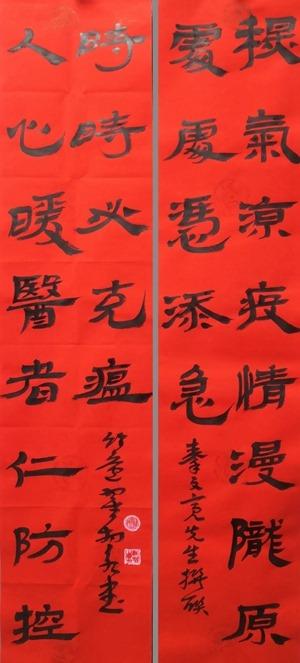 氣凉疫情漫隴原
處處憑添急
秦文亮先生撰联
人心暖醫者仁防控
時時必克瘟